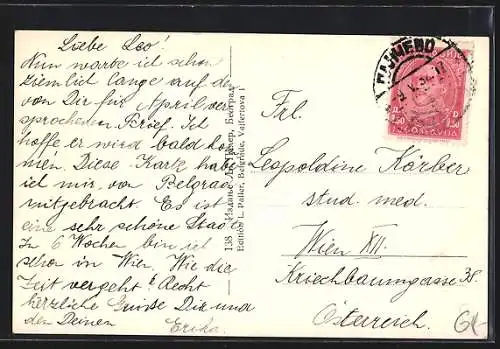 Liebe Leo!
Nun warte ich schon
ziemlich lange auf den
von Dir für April ver
sprochenen Brief. Ich
hoffe er wird bald kom
men. Diese Karte habe
ich mir von Belgrad
mitgebracht. Es ist
eine sehr schöne Stadt.
In 6 Wochen bin ich
schon in Wien. Wie die
Zeit vergeht! Recht
herzliche Grüsse Dir und
den Deinen
Erika.
138 Издање Београд
Edition L. Palier, Belgrade, Vajfertova 1
JUGOSLAVIJA
1.50
1.50
Frl.
Leopoldine Körber
stud. med.
Wien XII.
Kriechbaumgasse
Österreich.